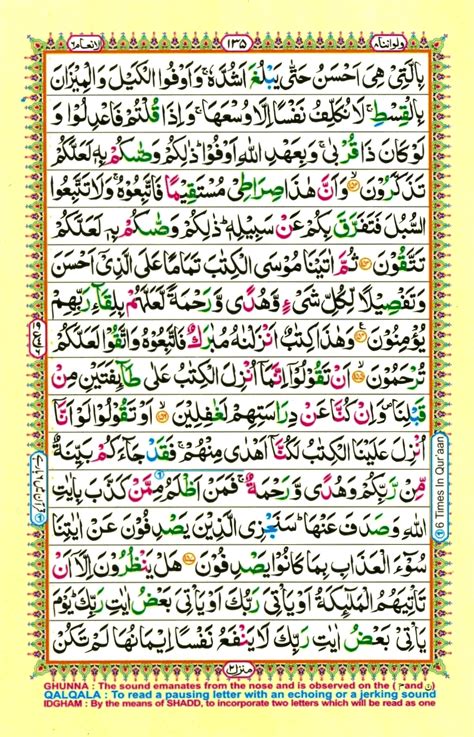 الانعام ٦
١٣٥
ولو اننا ٨
بِالَّتِیْ هِیَ اَحْسَنُ حَتّٰی یَبْلُغَ اَشُدَّهٗ ۚ وَاَوْفُوا الْكَیْلَ وَالْمِیْزَانَ
بِالْقِسْطِ ۚ لَا نُكَلِّفُ نَفْسًا اِلَّا وُسْعَهَا ۚ وَاِذَا قُلْتُمْ فَاعْدِلُوْا وَ
لَوْ كَانَ ذَا قُرْبٰی ۚ وَبِعَهْدِ اللّٰهِ اَوْفُوْا ؕ ذٰلِكُمْ وَصّٰىكُمْ بِهٖ لَعَلَّكُمْ
تَذَكَّرُوْنَ وَاَنَّ هٰذَا صِرَاطِیْ مُسْتَقِیْمًا فَاتَّبِعُوْهُ ۚ وَلَا تَتَّبِعُوا
السُّبُلَ فَتَفَرَّقَ بِكُمْ عَنْ سَبِیْلِهٖ ؕ ذٰلِكُمْ وَصّٰىكُمْ بِهٖ لَعَلَّكُمْ
تَتَّقُوْنَ ثُمَّ اٰتَیْنَا مُوْسَی الْكِتٰبَ تَمَامًا عَلَی الَّذِیْۤ اَحْسَنَ
وَتَفْصِیْلًا لِّكُلِّ شَیْءٍ وَّهُدًی وَّرَحْمَةً لَّعَلَّهُمْ بِلِقَآءِ رَبِّهِمْ
یُؤْمِنُوْنَ وَهٰذَا كِتٰبٌ اَنْزَلْنٰهُ مُبٰرَكٌ فَاتَّبِعُوْهُ وَاتَّقُوْا لَعَلَّكُمْ
تُرْحَمُوْنَ اَنْ تَقُوْلُوْۤا اِنَّمَاۤ اُنْزِلَ الْكِتٰبُ عَلٰی طَآىِٕفَتَیْنِ مِنْ
قَبْلِنَا ۪ وَاِنْ كُنَّا عَنْ دِرَاسَتِهِمْ لَغٰفِلِیْنَ اَوْ تَقُوْلُوْا لَوْ اَنَّاۤ
اُنْزِلَ عَلَیْنَا الْكِتٰبُ لَكُنَّاۤ اَهْدٰی مِنْهُمْ ۚ فَقَدْ جَآءَكُمْ بَیِّنَةٌ
مِّنْ رَّبِّكُمْ وَهُدًی وَّرَحْمَةٌ ۚ فَمَنْ اَظْلَمُ مِمَّنْ كَذَّبَ بِاٰیٰتِ
اللّٰهِ وَصَدَفَ عَنْهَا ؕ سَنَجْزِی الَّذِیْنَ یَصْدِفُوْنَ عَنْ اٰیٰتِنَا
سُوْٓءَ الْعَذَابِ بِمَا كَانُوْا یَصْدِفُوْنَ هَلْ یَنْظُرُوْنَ اِلَّاۤ اَنْ
تَاْتِیَهُمُ الْمَلٰٓىِٕكَةُ اَوْ یَاْتِیَ رَبُّكَ اَوْ یَاْتِیَ بَعْضُ اٰیٰتِ رَبِّكَ ؕ یَوْمَ
یَاْتِیْ بَعْضُ اٰیٰتِ رَبِّكَ لَا یَنْفَعُ نَفْسًا اِیْمَانُهَا لَمْ تَكُنْ
منزل ٢
① 6 Times In Qur'aan
GHUNNA : The sound emanates from the nose and is observed on the ( م and ن )
QALQALA : To read a pausing letter with an echoing or a jerking sound
IDGHAM : By the means of SHADD, to incorporate two letters which will be read as one